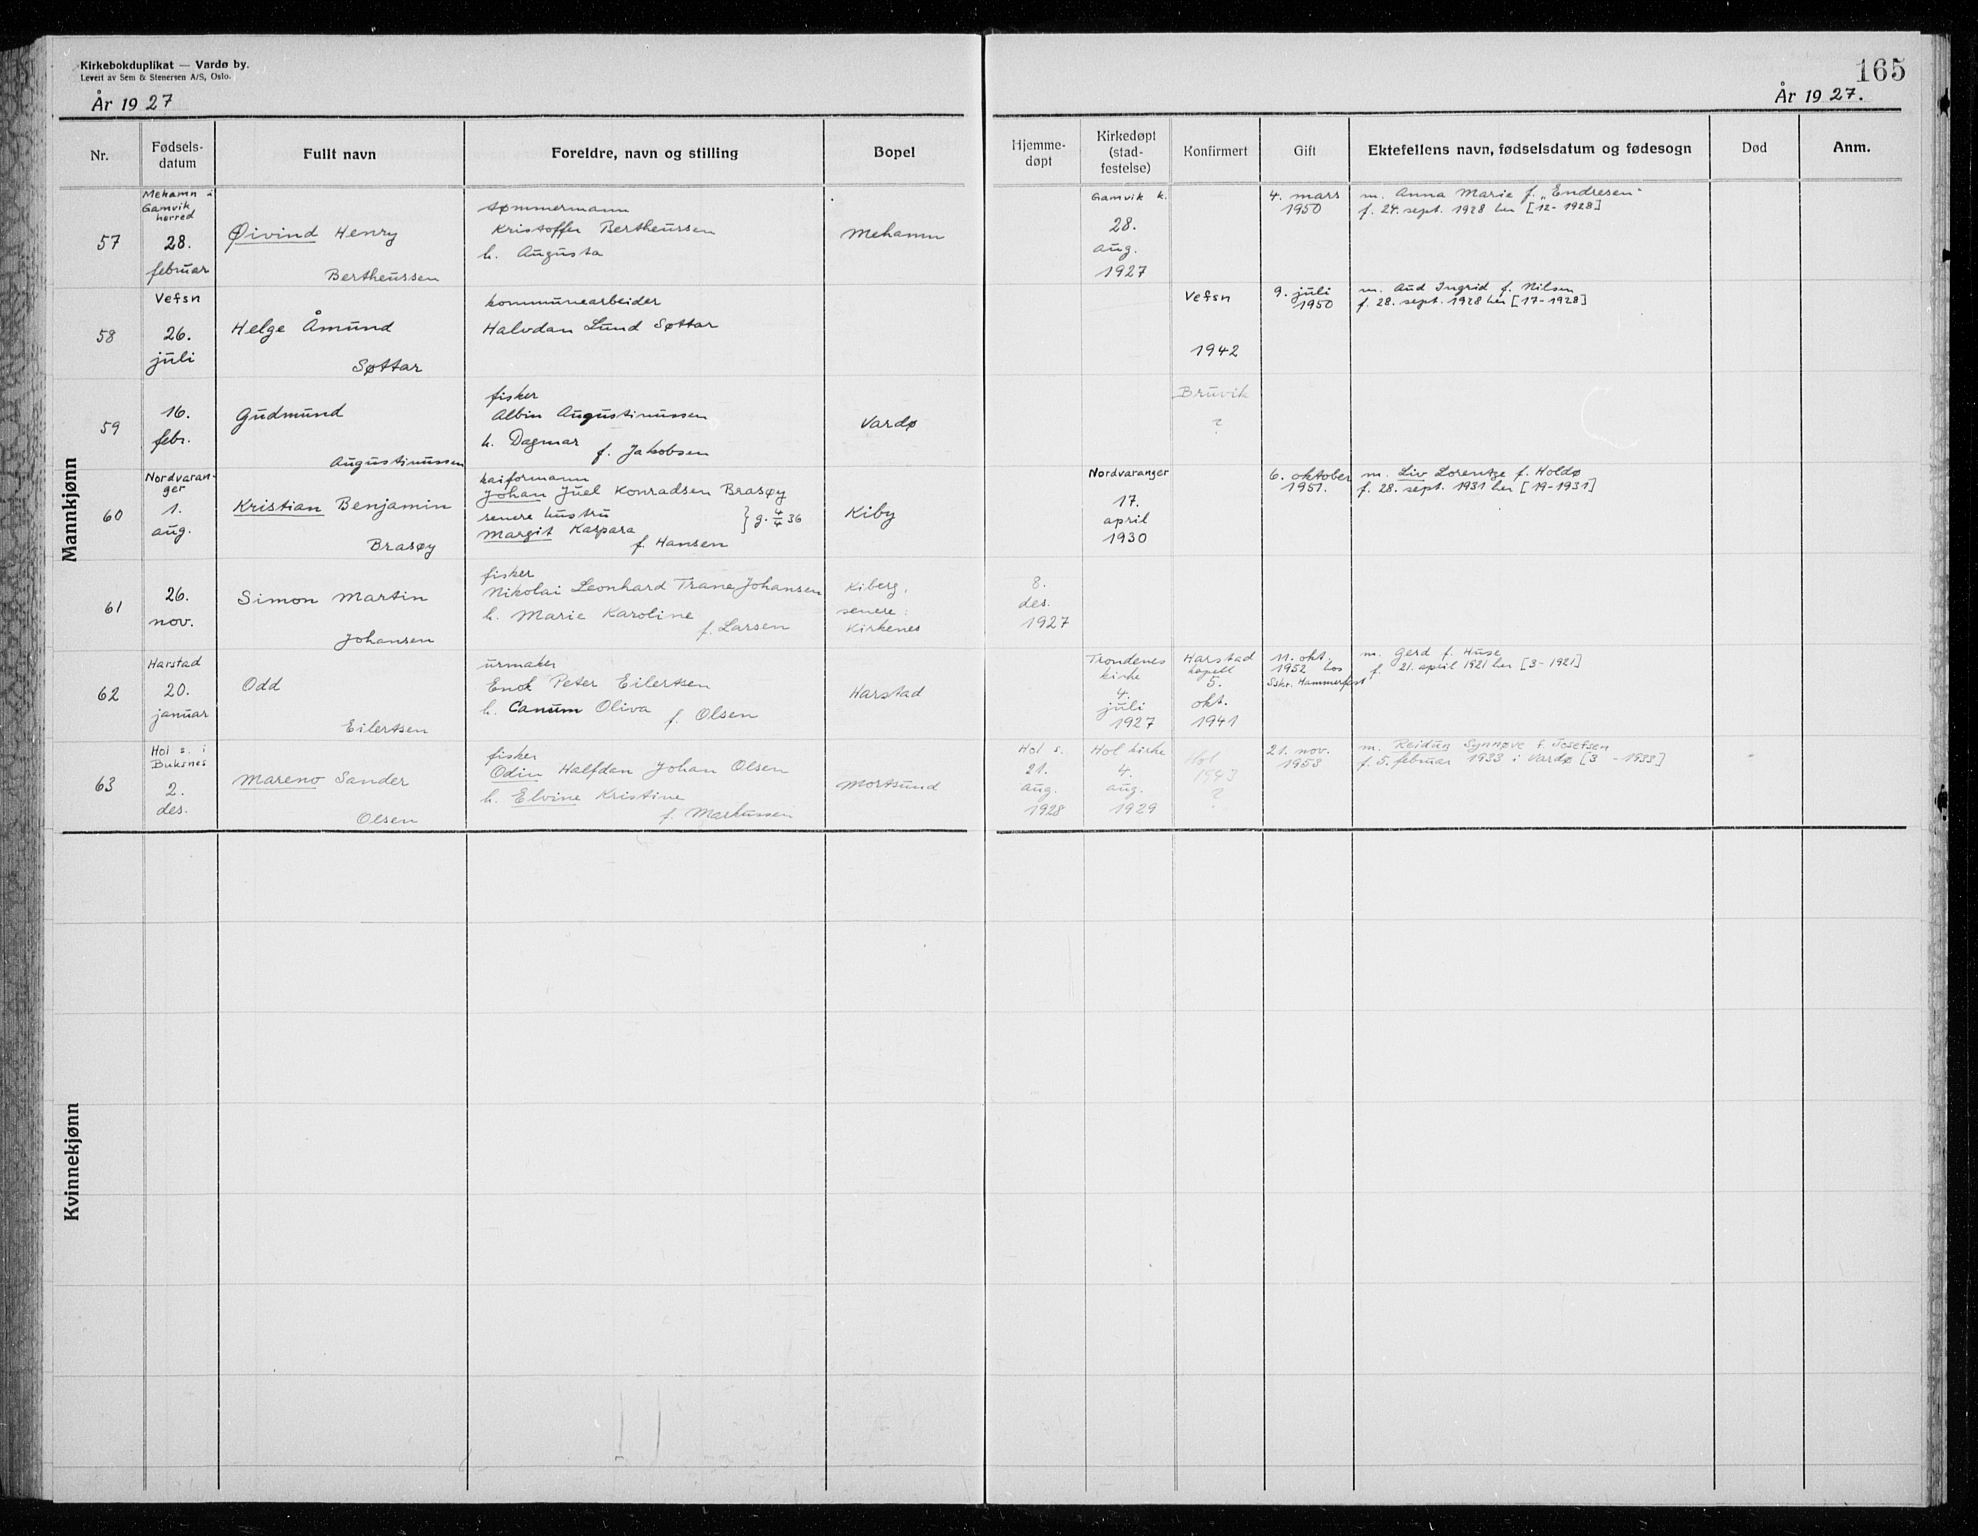 Kirkebokduplikat — Vardø by.
Levert av Sem & Stenersen A/S, Oslo.
År 1927
165
År 1927.
Nr.
Fødsels-
datum
Fullt navn
Foreldre, navn og stilling
Bopel
Hjemme-
døpt
Kirkedøpt
(stad-
festelse)
Konfirmert
Gift
Ektefellens navn, fødselsdatum og fødesogn
Død
Anm.
Mannkjønn
57
Mehamn i
Gamvik
herred
28.
februar
Øivind Henry
Bertheussen
tømmermann
Kristoffer Bertheussen
h. Augusta
Mehamn
Gamvik k.
28.
aug.
1927
4. mars
1950
m. Anna Marie f. „Endresen"
f. 24. sept. 1928 her [12-1928]
58
Vefsn
26.
juli
Helge Åmund
Søttar
kommunearbeider
Halvdan Lund Søttar
Vefsn
1942
9. juli
1950
m. Aud Ingrid f. Nilsen
f. 28. sept. 1928 her [17-1928]
59
16.
febr.
Gudmund
Augustinussen
fisker
Albin Augustinussen
h. Dagmar
f. Jakobsen
Vardø
Bruvik
?
60
Nordvaran-
ger
1.
aug.
Kristian Benjamin
Brasøy
kaiformann
Johan Juel Konradsen Brasøy
senere hustru
Margit Kaspara
f. Hansen
} g. 4/4 36
Kiby
Nordvaranger
17.
april
1930
6. oktober
1951.
m. Liv Lorentze f. Holdø
f. 28. sept. 1931 her [19-1931]
61
26.
nov.
Simon Martin
Johansen
fisker
Nikolai Leonhard Trane Johansen
h. Marie Karoline
f. Larsen
Kiberg,
senere:
Kirkenes
8.
des.
1927
62
Harstad
20.
januar
Odd
Eilertsen
urmaker
Enok Peter Eilertsen
h. Canum Oliva
f. Olsen
Harstad
Trondenes
kirke
4.
juli
1927
Harstad
kapell
5.
okt.
1941
11. okt.
1952 hos
Sskr. Hammerfest
m. Gerd f. Huse
f. 21. april 1921 her [3-1921]
63
Hol s. i
Buksnes
2.
des.
Mareno Sander
Olsen
fisker
Odin Halfdan Johan Olsen
h. Elvine Kristine
f. Markussen
Mortsund
Hol s.
21.
aug.
1928
Hol kirke
4.
aug.
1929
Hol
1943
?
21. nov.
1953
m. Reidun Synnøve f. Josefsen
f. 5. februar 1933 i Vardø [3 - 1933]
Kvinnekjønn